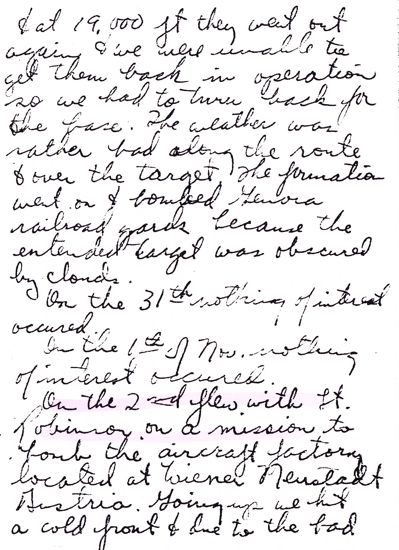 & at 19,000 ft they went out
again & we were unable to
get them back in operation
so we had to turn back for
the base. The weather was
rather bad along the route
& over the target. The formation
went on & bombed Genova
railroad yards because the
entended target was obscured
by clouds.
On the 31th nothing of interest
occured.
On the 1st of Nov. nothing
of interest occured.
On the 2nd flew with Lt.
Robinson on a mission to
bomb the aircraft factory
located at Wiener Neustadt
Austria. Going up we hit
a cold front & due to the bad